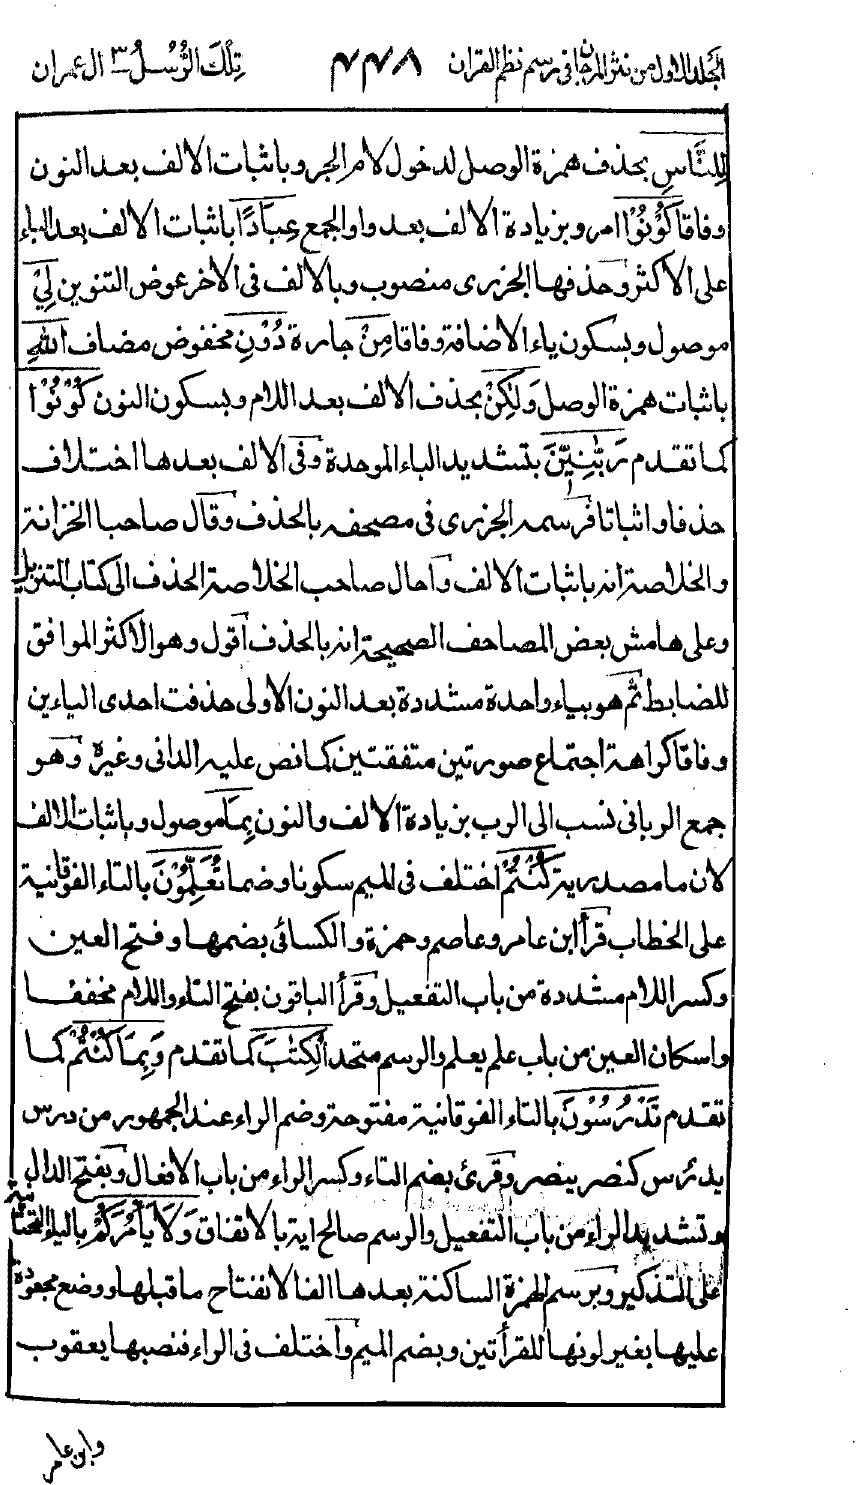 المجلد الاول من نثر المرجان فى رسم نظم القران ٤٤٨ تِلْكَ الرُّسُلُ ٣ ال عمران
لِلنَّاسِ بحذف همزة الوصل لدخول لام الجر وباثبات الالف بعد النون
وفاقا كُوْنُوْا امر وبزيادة الالف بعد واو الجمع عِبَادًا باثبات الالف بعد الباء
على الاكثر وحذفها الجزرى منصوب وبالالف فى الاخر عوض التنوين لِيْ
موصول وبسكون ياء الاضافة وفاقا مِنْ جارة دُوْنِ مخفوض مضاف اللهِ
باثبات همزة الوصل وَلٰكِنْ بحذف الالف بعد اللام وبسكون النون كُوْنُوْا
كما تقدم رَبّٰنِيّٖنَ بتشديد الباء الموحدة وفى الالف بعدها اختلاف
حذفا واثباتا فرسمه الجزرى فى مصحفه بالحذف وقال صاحبا الخزانة
والخلاصة انه باثبات الالف واحال صاحب الخلاصة الحذف الى كتاب التنزيل
وعلى هامش بعض المصاحف الصحيحة انه بالحذف اقول وهو الاكثر الموافق
للضابط ثم هو بياء واحدة مشددة بعد النون الاولى حذفت احدى الياءين
وفاقا كراهة اجتماع صورتين متفقتين كما نص عليه الدانى وغيره وهو
جمع الربانى نسب الى الرب بزيادة الالف والنون بِمَا موصول وباثبات الالف
لان ما مصدرية كُنْتُمْ اختلف فى الميم سكونا وضما تُعَلِّمُوْنَ بالتاء الفوقانية
على الخطاب قرأ ابن عامر وعاصم وحمزة والكسائى بضمها وفتح العين
وكسر اللام مشددة من باب التفعيل وقرأ الباقون بفتح التاء واللام مخففا
واسكان العين من باب علم يعلم والرسم متحد الْكِتٰبَ كما تقدم وَبِمَا كُنْتُمْ كما
تقدم تَدْرُسُوْنَ بالتاء الفوقانية مفتوحة وضم الراء عند الجمهور من درس
يدرس كنصر ينصر وقرئ بضم التاء وكسر الراء من باب الافعال وبفتح الدال
وتشديد الراء من باب التفعيل والرسم صالح اية بالاتفاق وَلَا يَأْمُرَكُمْ بالياء التحتانية
على التذكير وبرسم الهمزة الساكنة بعدها الفا لانفتاح ما قبلها ووضع مجعودة
عليها بغير لونها للقرأتين وبضم الميم واختلف فى الراء فنصبها يعقوب
وابن عامر